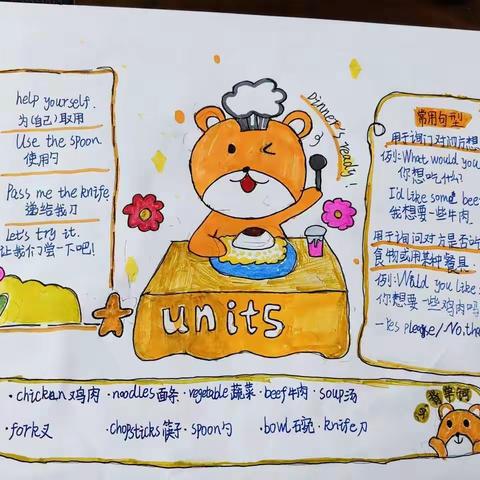 help yourself.
为(自己)取用
Use the spoon
使用勺
Pass me the knife
递给我刀
Let's try it.
让我们尝一下吧!
Dinner's ready!
units
常用句型
用于询问对方想
例:What would you
你想吃什么?
I'd like some beef
我想要一些牛肉.
用于询问对方是否
食物或用某种餐具
例:Would you like s
你想要一些鸡肉吗
-Yes please/No,tha
·chickan鸡肉·noodles面条·vegetable蔬菜·beef牛肉·soup汤
·fork叉 ·chopsticks筷子·spoon勺 ·bowl石碗·knife刀